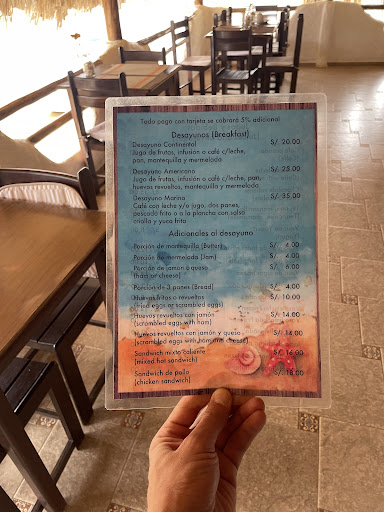 Todo pago con tarjeta se cobrará 5% adicional
Desayunos (Breakfast)
Desayuno Continental S/. 20.00
Jugo de frutas, infusión o café c/leche,
pan, mantequilla y mermelada
Desayuno Americano S/. 25.00
Jugo de frutas, infusión o café c/leche, pan,
huevos revueltos, mantequilla y mermelada
Desayuno Marino S/. 35.00
Café con leche y/o jugo, dos panes,
pescado frito o a la plancha con salsa
criolla y yuca frita
Adicionales al desayuno
Porción de mantequilla (Butter) S/. 4.00
Porción de mermelada (Jam) S/. 4.00
Porción de jamón o queso S/. 6.00
(ham or cheese)
Porción de 3 panes (Bread) S/. 4.00
Huevos fritos o revueltos S/. 10.00
(fried eggs or scrambled eggs)
Huevos revueltos con jamón S/. 14.00
(scrambled eggs with ham)
Huevos revueltos con jamón y queso S/. 14.00
(scrambled eggs with ham and cheese)
Sandwich mixto caliente S/. 16.00
(mixed hot sandwich)
Sandwich de pollo S/. 18.00
(chicken sandwich)